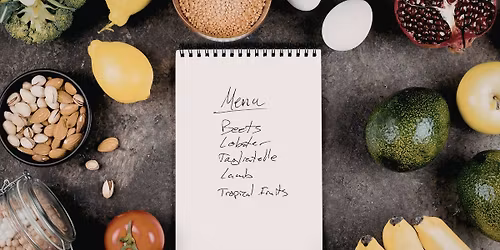 Menu
Beets
Lobster
Tagliatelle
Lamb
Tropical Fruits